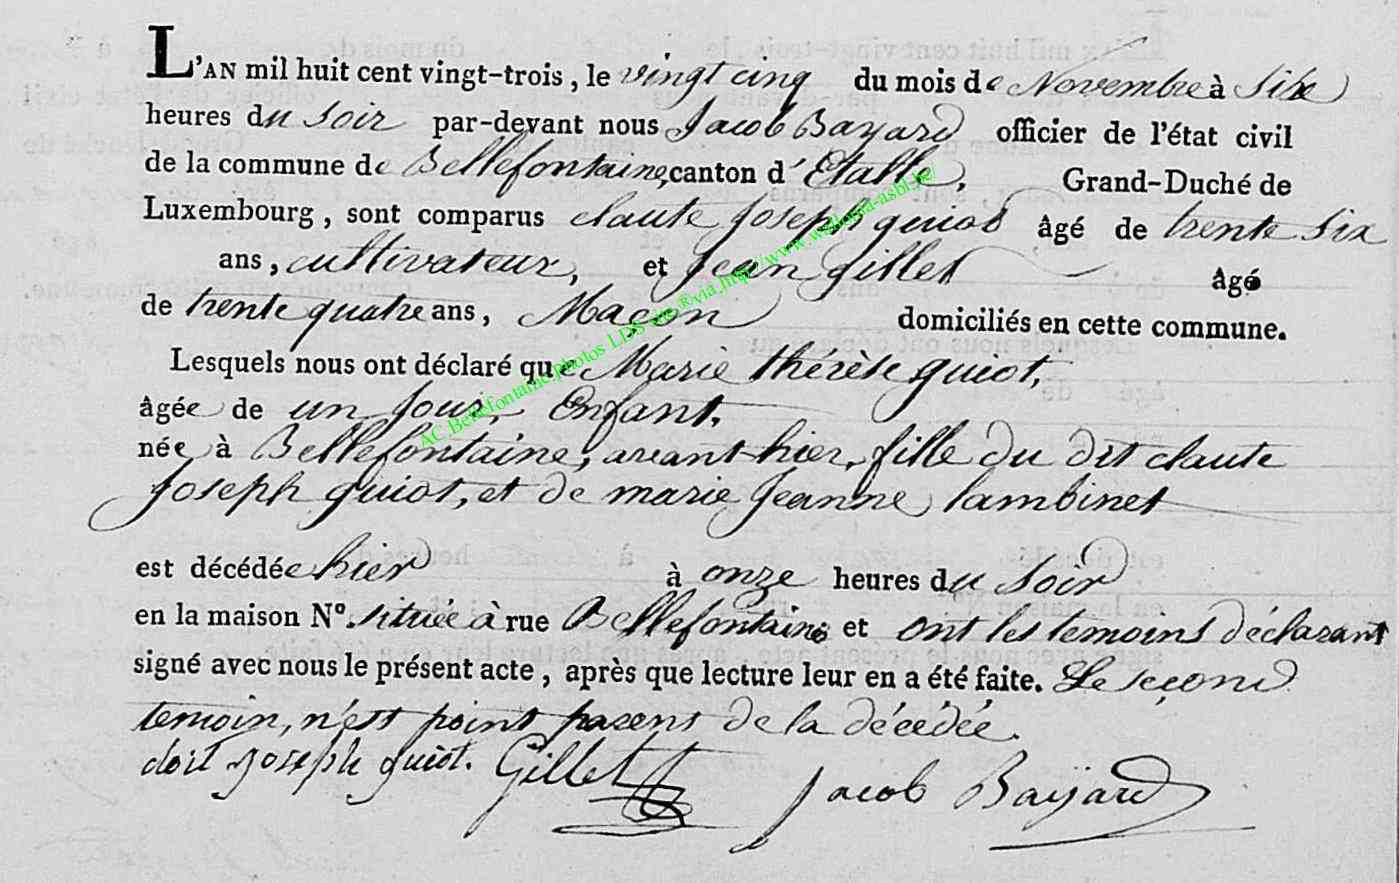 L'AN mil huit cent vingt-trois, le vingt cinq du mois de Novembre à Six
heures du Soir par-devant nous Jacob Bayard officier de l'état civil
de la commune de Bellefontaine, canton d'Etalle, Grand-Duché de
Luxembourg, sont comparus claute Joseph guiot âgé de trente Six
ans, cultivateur, et Jean gillet âgé
de trente quatre ans, Maçon domiciliés en cette commune.
Lesquels nous ont déclaré que Marie thérèse guiot,
âgée de un jour, Enfant,
née à Bellefontaine, avant hier, fille du dit claute
Joseph guiot, et de marie Jeanne lambinet
est décédée hier à onze heures du Soir
en la maison N°. située à rue Bellefontaine et ont les temoins déclarant
signé avec nous le présent acte, après que lecture leur en a été faite. Le second
temoin, n'est point parent de la décédée.
Joseph guiot. Gillet Jacob Bayard
AC Bellefontaine photos LDS via http://www.wallonia-asbl.be/